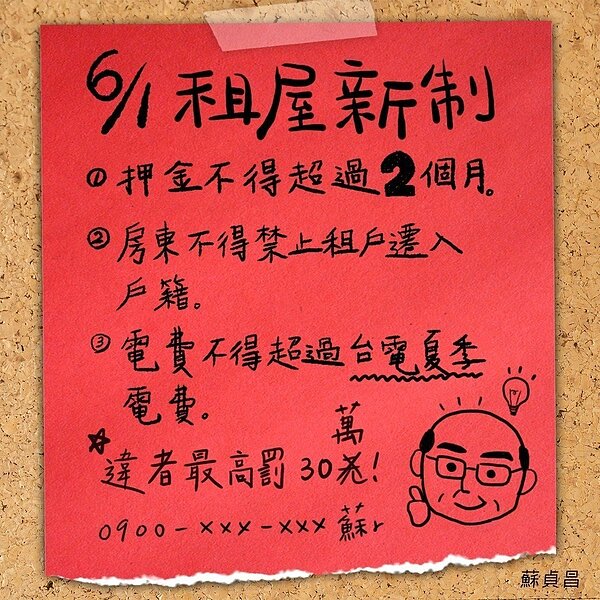 6/1租屋新制
① 押金不得超過2個月。
② 房東不得禁止租戶遷入
戶籍。
③ 電費不得超過台電夏季
電費。
☆違者最高罰30萬!
0900-xxx-xxx 蘇r
蘇貞昌